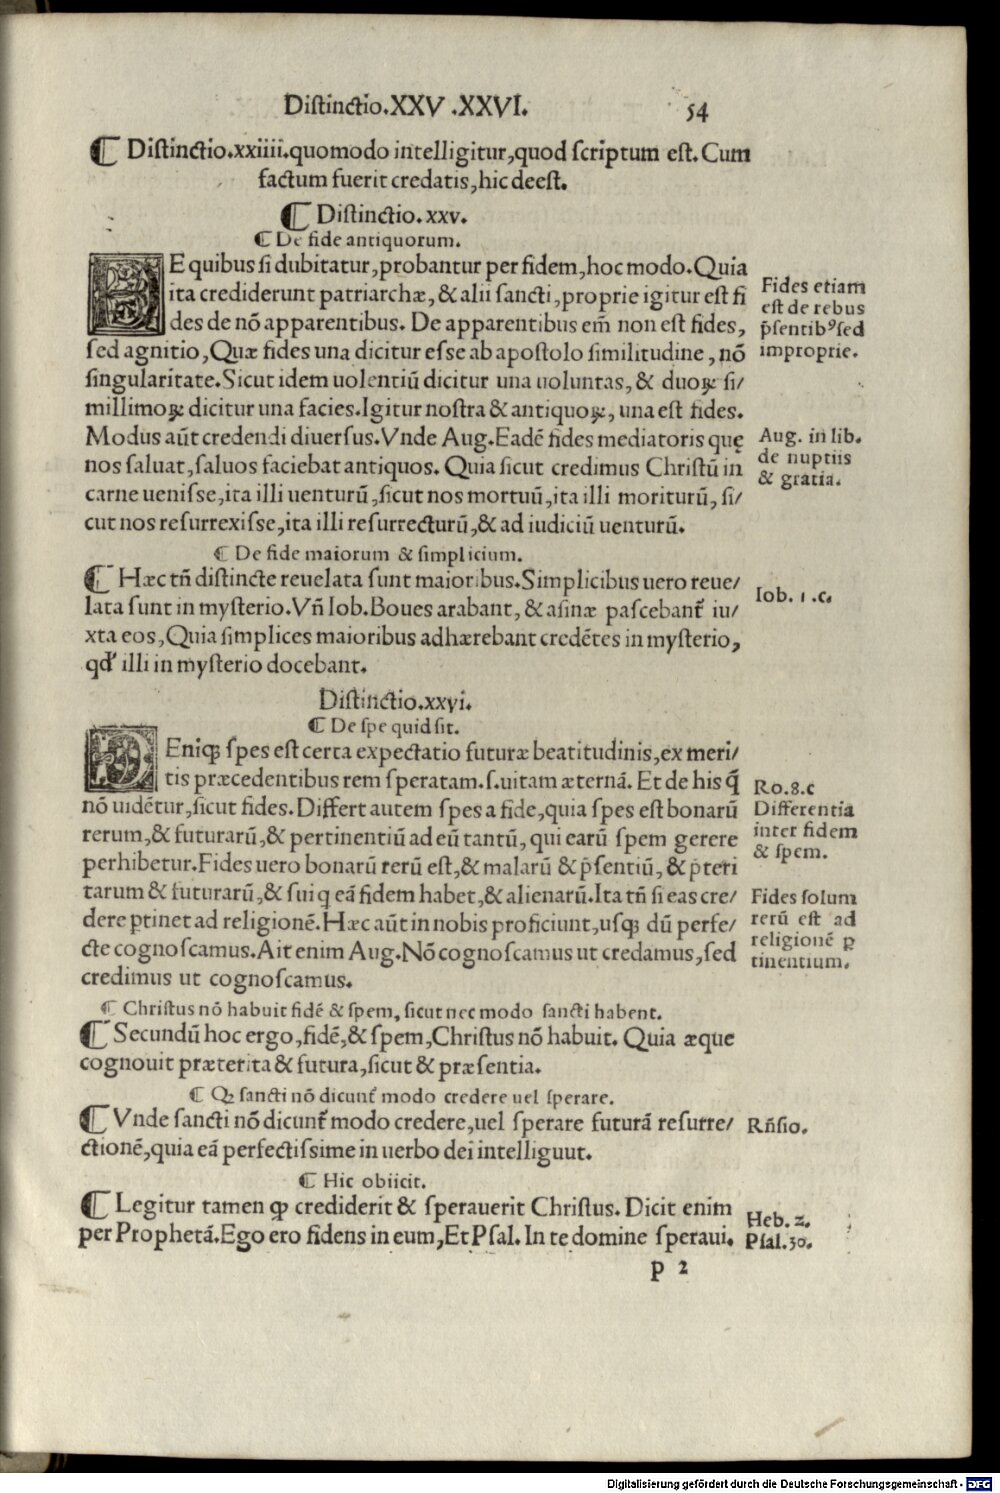 Distinctio.XXV .XXVI. 54
¶ Distinctio.xxiiii.quomodo intelligitur,quod scriptum est.Cum
factum fuerit credatis,hic deest.
¶ Distinctio.xxv.
¶ De fide antiquorum.
DE quibus si dubitatur,probantur per fidem,hoc modo.Quia
ita crediderunt patriarchæ,&alii sancti,proprie igitur est fi
des de nõ apparentibus. De apparentibus em̃ non est fides,
sed agnitio,Quæ fides una dicitur esse ab apostolo similitudine,nõ
singularitate.Sicut idem uolentiũ dicitur una uoluntas,& duoꝝ si/
millimoꝝ dicitur una facies.Igitur nostra & antiquoꝝ,una est fides.
Modus aũt credendi diuersus.Vnde Aug.Eadẽ fides mediatoris quę
nos saluat,saluos faciebat antiquos. Quia sicut credimus Christũ in
carne uenisse,ita illi uenturũ,sicut nos mortuũ,ita illi moriturũ, si/
cut nos resurrexisse,ita illi resurrecturũ,& ad iudiciũ uenturũ.
Fides etiam
est de rebus
p̃sentibꝰsed
improprie.
Aug. in lib.
de nuptiis
& gratia.
¶ De fide maiorum & simplicium.
¶ Hæc tñ distincte reuelata sunt maioribus.Simplicibus uero reue/
lata sunt in mysterio.Vñ Iob.Boues arabant,&asinæ pascebant̃ iu/
xta eos,Quia simplices maioribus adhærebant credẽtes in mysterio,
qđ illi in mysterio docebant.
Iob. 1 .c.
Distinctio.xxvi.
¶ De spe quid sit.
DEniqꝫ spes est certa expectatio futuræ beatitudinis,ex meri/
tis præcedentibus rem speratam.s.uitam æternã. Et de his q̃
nõ uidẽtur,sicut fides.Differt autem spes a fide,quia spes est bonarũ
rerum,& futurarũ,& pertinentiũ ad eũ tantũ, qui earũ spem gerere
perhibetur.Fides uero bonarũ rerũ est,& malarũ & p̃sentiũ,& p̃teri
tarum & futurarũ,& sui q eã fidem habet,& alienarũ.Ita tñ si eas cre/
dere ꝑtinet ad religionẽ.Hæc aũt in nobis proficiunt,usqꝫ dũ perfe/
cte cognoscamus.Ait enim Aug.Nõ cognoscamus ut credamus,sed
credimus ut cognoscamus.
Ro.8.c
Differentia
inter fidem
& spem.
Fides solum
rerũ est ad
religionẽ ꝑ
tinentium.
¶ Christus nõ habuit fidẽ & spem, sicut nec modo sancti habent.
¶ Secundũ hoc ergo,fidẽ,& spem,Christus nõ habuit. Quia æque
cognouit præterita & futura,sicut & præsentia.
¶ Qꝫ sancti nõ dicunt̃ modo credere uel sperare.
¶ Vnde sancti nõ dicunt̃ modo credere,uel sperare futurã resurre/
ctionẽ,quia eã perfectissime in uerbo dei intelliguut.
Rñsio.
¶ Hic obiicit.
¶ Legitur tamen ꝙ crediderit & sperauerit Christus. Dicit enim
per Prophetã.Ego ero fidens in eum,Et Psal. In te domine speraui.
Heb. 2.
Psal.30.
p 2
Digitalisierung gefördert durch die Deutsche Forschungsgemeinschaft - DFG